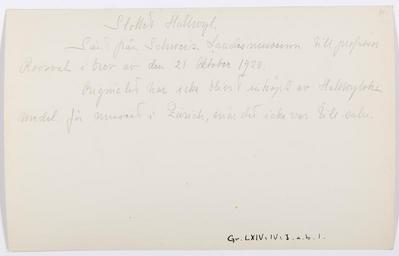 Slottet Hallwyl.
Sänt från Schweiz. Landesmuseum till professor
Roosval i brev av den 21 Oktober 1920.
Originalet har icke blivit inköpt av Hallwylska
medel för museet i Zürich, enär det icke var till salu.
Gr. LXIV: IV: I. a. b. 1.